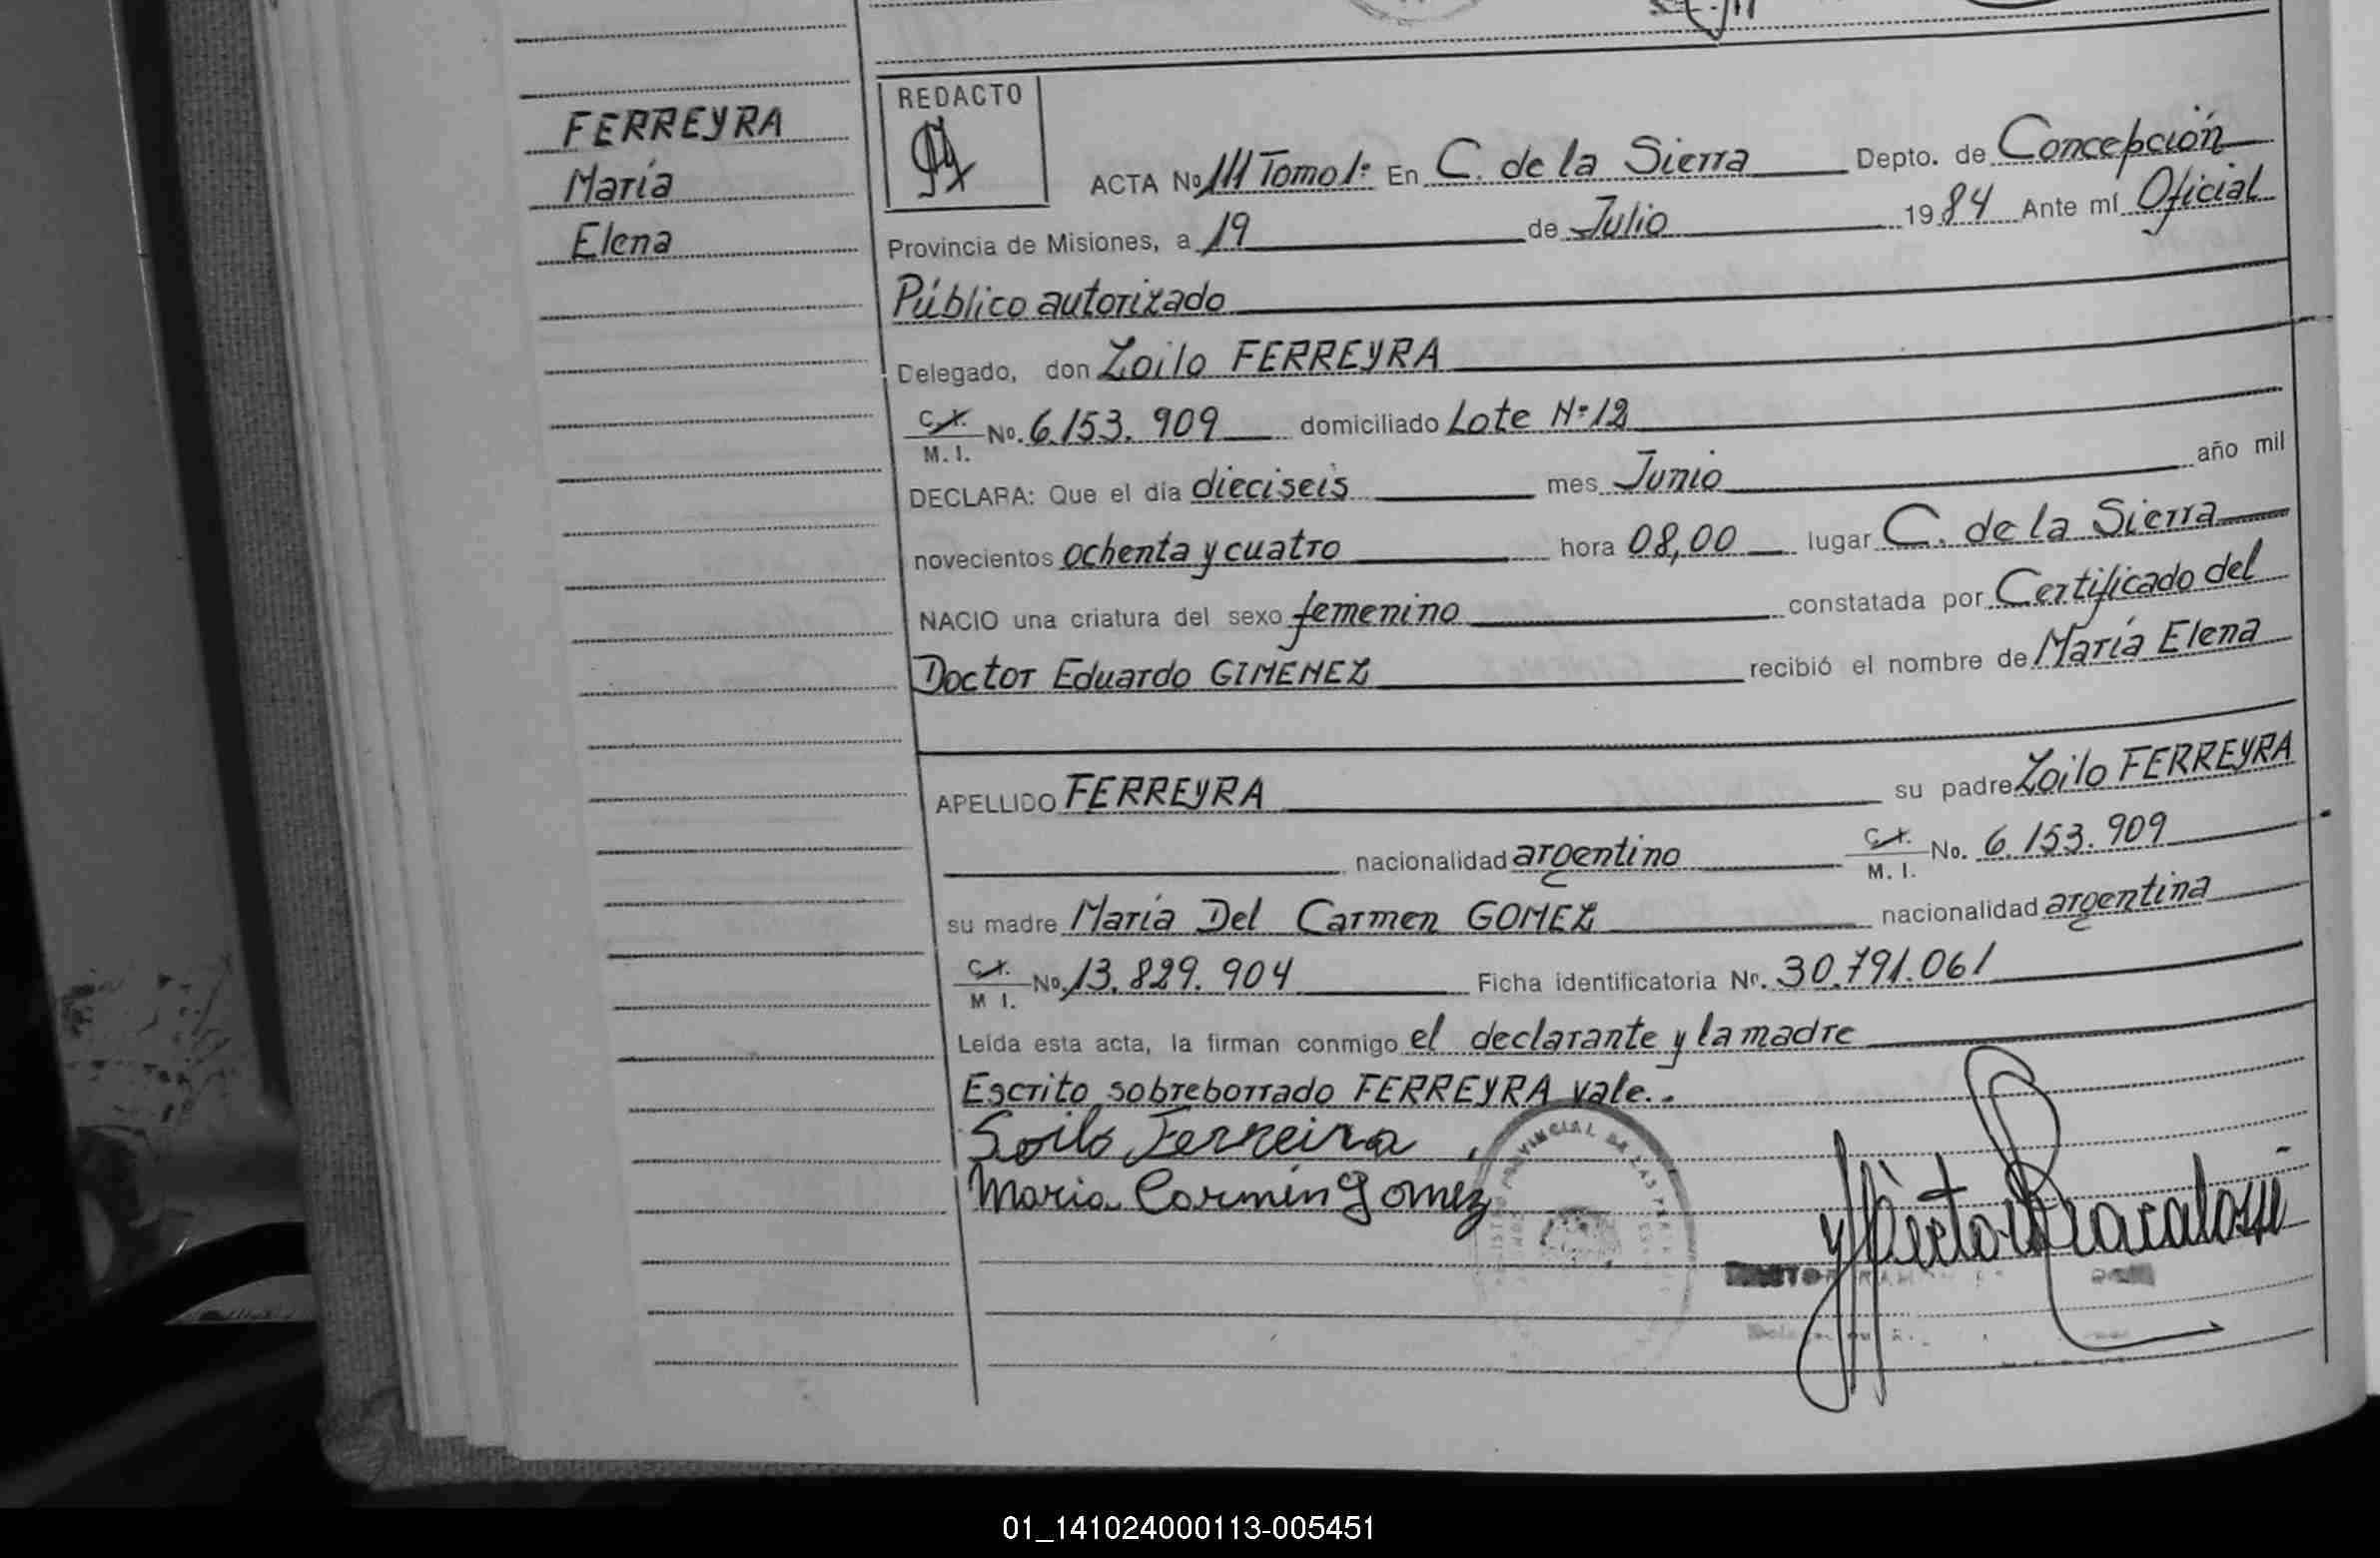 FERREYRA
María
Elena
REDACTO
ACTA No 111 Tomo 1º En C. de la Sierra Depto. de Concepción
Provincia de Misiones, a 19 de Julio 1984 Ante mí Oficial
Público autorizado
Delegado, don Zoilo FERREYRA
C.I. M.I. No. 6.153.909 domiciliado Lote Nº 12
DECLARA: Que el día dieciseis mes Junio año mil
novecientos ochenta y cuatro hora 08,00 lugar C. de la Sierra
NACIO una criatura del sexo femenino constatada por Certificado del
Doctor Eduardo GIMENEZ recibió el nombre de María Elena
APELLIDO FERREYRA su padre Zoilo FERREYRA
nacionalidad argentino C.I. M.I. No. 6.153.909
su madre María Del Carmen GOMEZ nacionalidad argentina
C.I. M I. No. 13.829.904 Ficha identificatoria Nº. 30.791.061
Leída esta acta, la firman conmigo el declarante y la madre
Escrito sobreborrado FERREYRA vale..
Soilo Ferreira
Maria Carmin Gomez
PROVINCIAL DE LAS
01_141024000113-005451